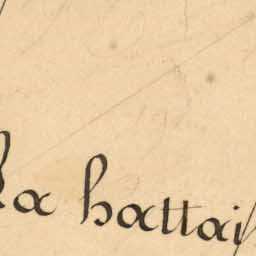 La battai